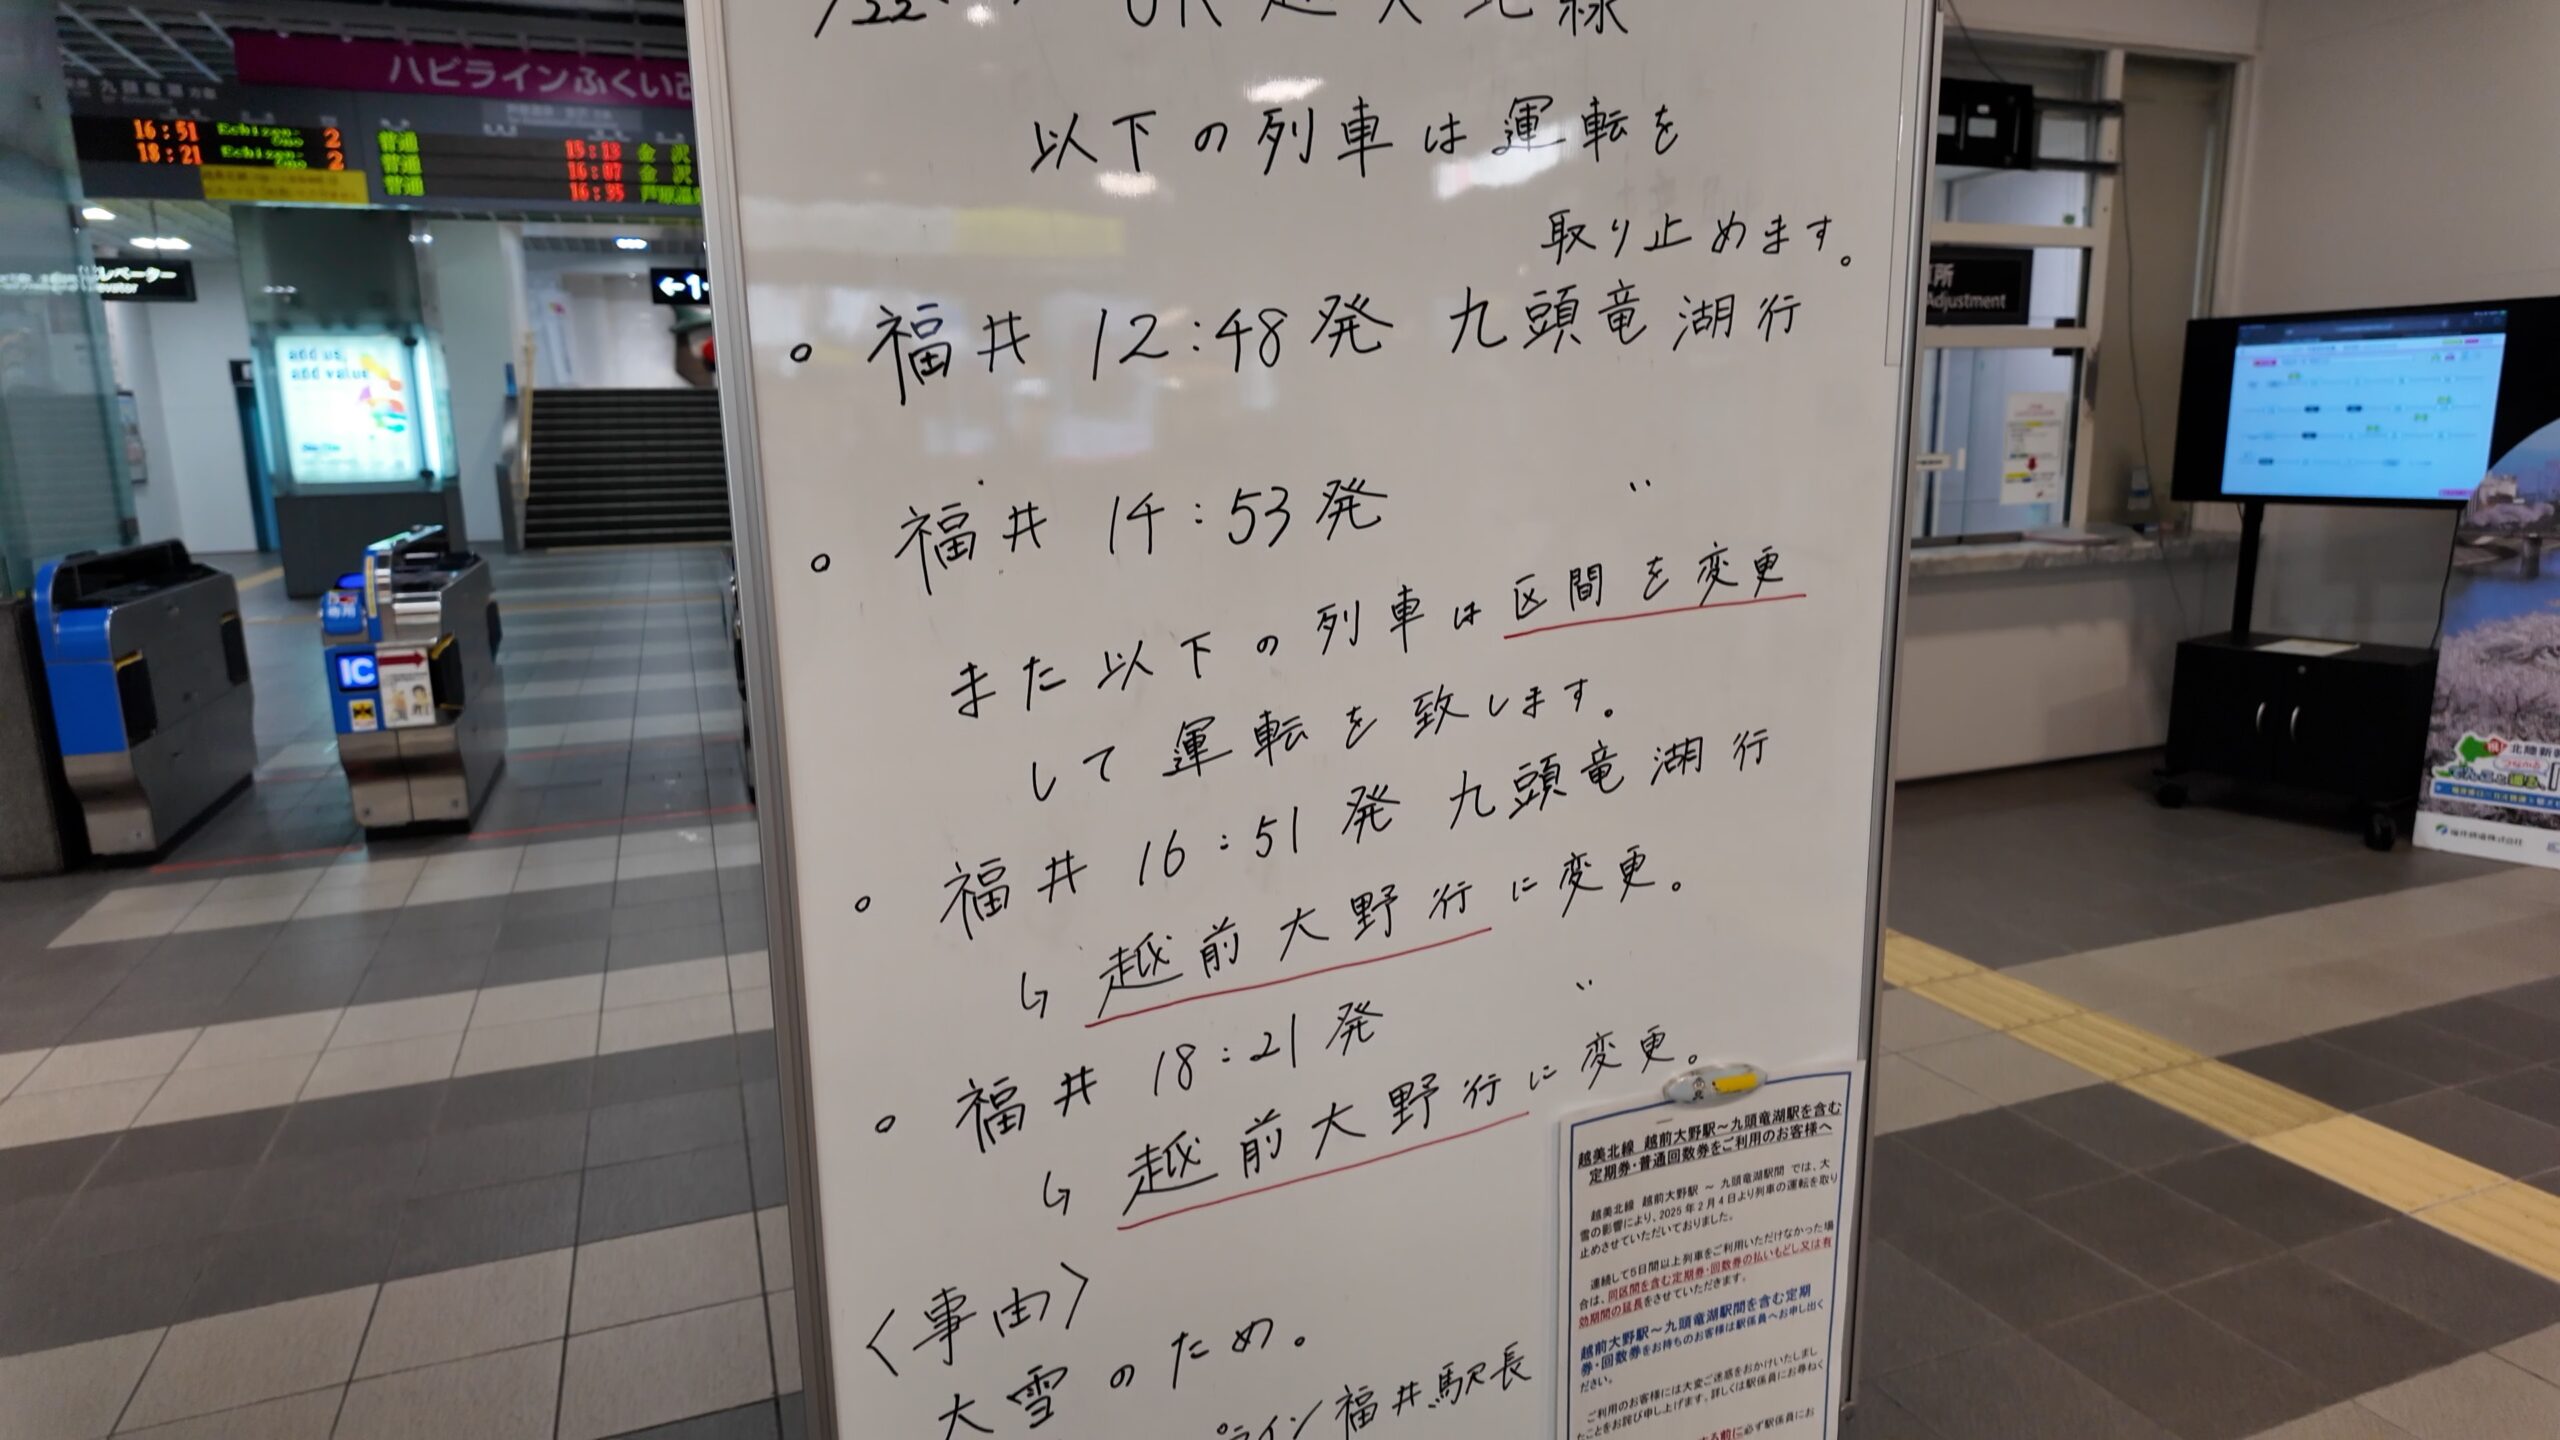 ハピラインふくい
16:51 Echizen-Ono 2
18:21 Echizen-Ono 2
普通 15:13 金沢
普通 16:07 金沢
普通 16:35 芦原温
←1
add us,
add value
IC
Adjustment
越美北線
以下の列車は運転を
取り止めます。
○ 福井 12:48発 九頭竜湖行
○ 福井 14:53発 〃
また以下の列車は区間を変更
して運転を致します。
○ 福井 16:51発 九頭竜湖行
↳ 越前大野行に変更。
○ 福井 18:21発 〃
↳ 越前大野行に変更。
〈事由〉
大雪のため。
ライン福井駅長
越美北線 越前大野駅～九頭竜湖駅を含む
定期券・普通回数券をご利用のお客様へ
越美北線 越前大野駅 ～ 九頭竜湖駅間 では、大
雪の影響により、2025年2月4日より列車の運転を取り
止めさせていただいておりました。
連続して5日間以上列車をご利用いただけなかった場
合は、同区間を含む定期券・回数券の払いもどし又は有
効期間の延長をさせていただきます。
越前大野駅～九頭竜湖駅間を含む定期
券・回数券をお持ちのお客様は駅係員へお申し出く
ださい。
ご利用のお客様には大変ご迷惑をおかけいたしまし
たことをお詫び申し上げます。詳しくは駅係員にお尋ねく
する前に必ず駅係員にお
北陸新
福井鉄道株式会社